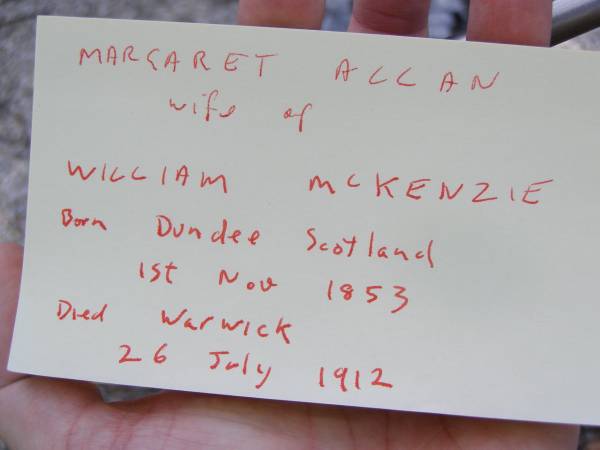 MARGARET ALLAN
wife of
WILLIAM McKENZIE
Born Dundee Scotland
1st Nov 1853
Died Warwick
26 July 1912